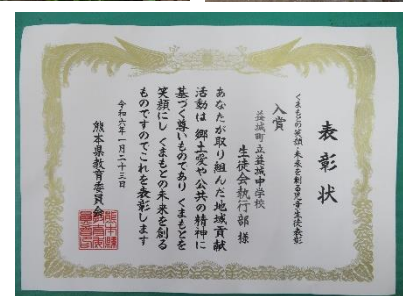 表彰状
くまもの笑顔・未来を創る児童生徒表彰
入賞
益城町立益城中学校
生徒会執行部 様
あなたが取り組んだ地域貢献
活動は 郷土愛や公共の精神に
基づく尊いものであり くまもとを
笑顔にし くまもとの未来を創る
ものですのでこれを表彰します
令和六年一月二十三日
熊本県教育委員会